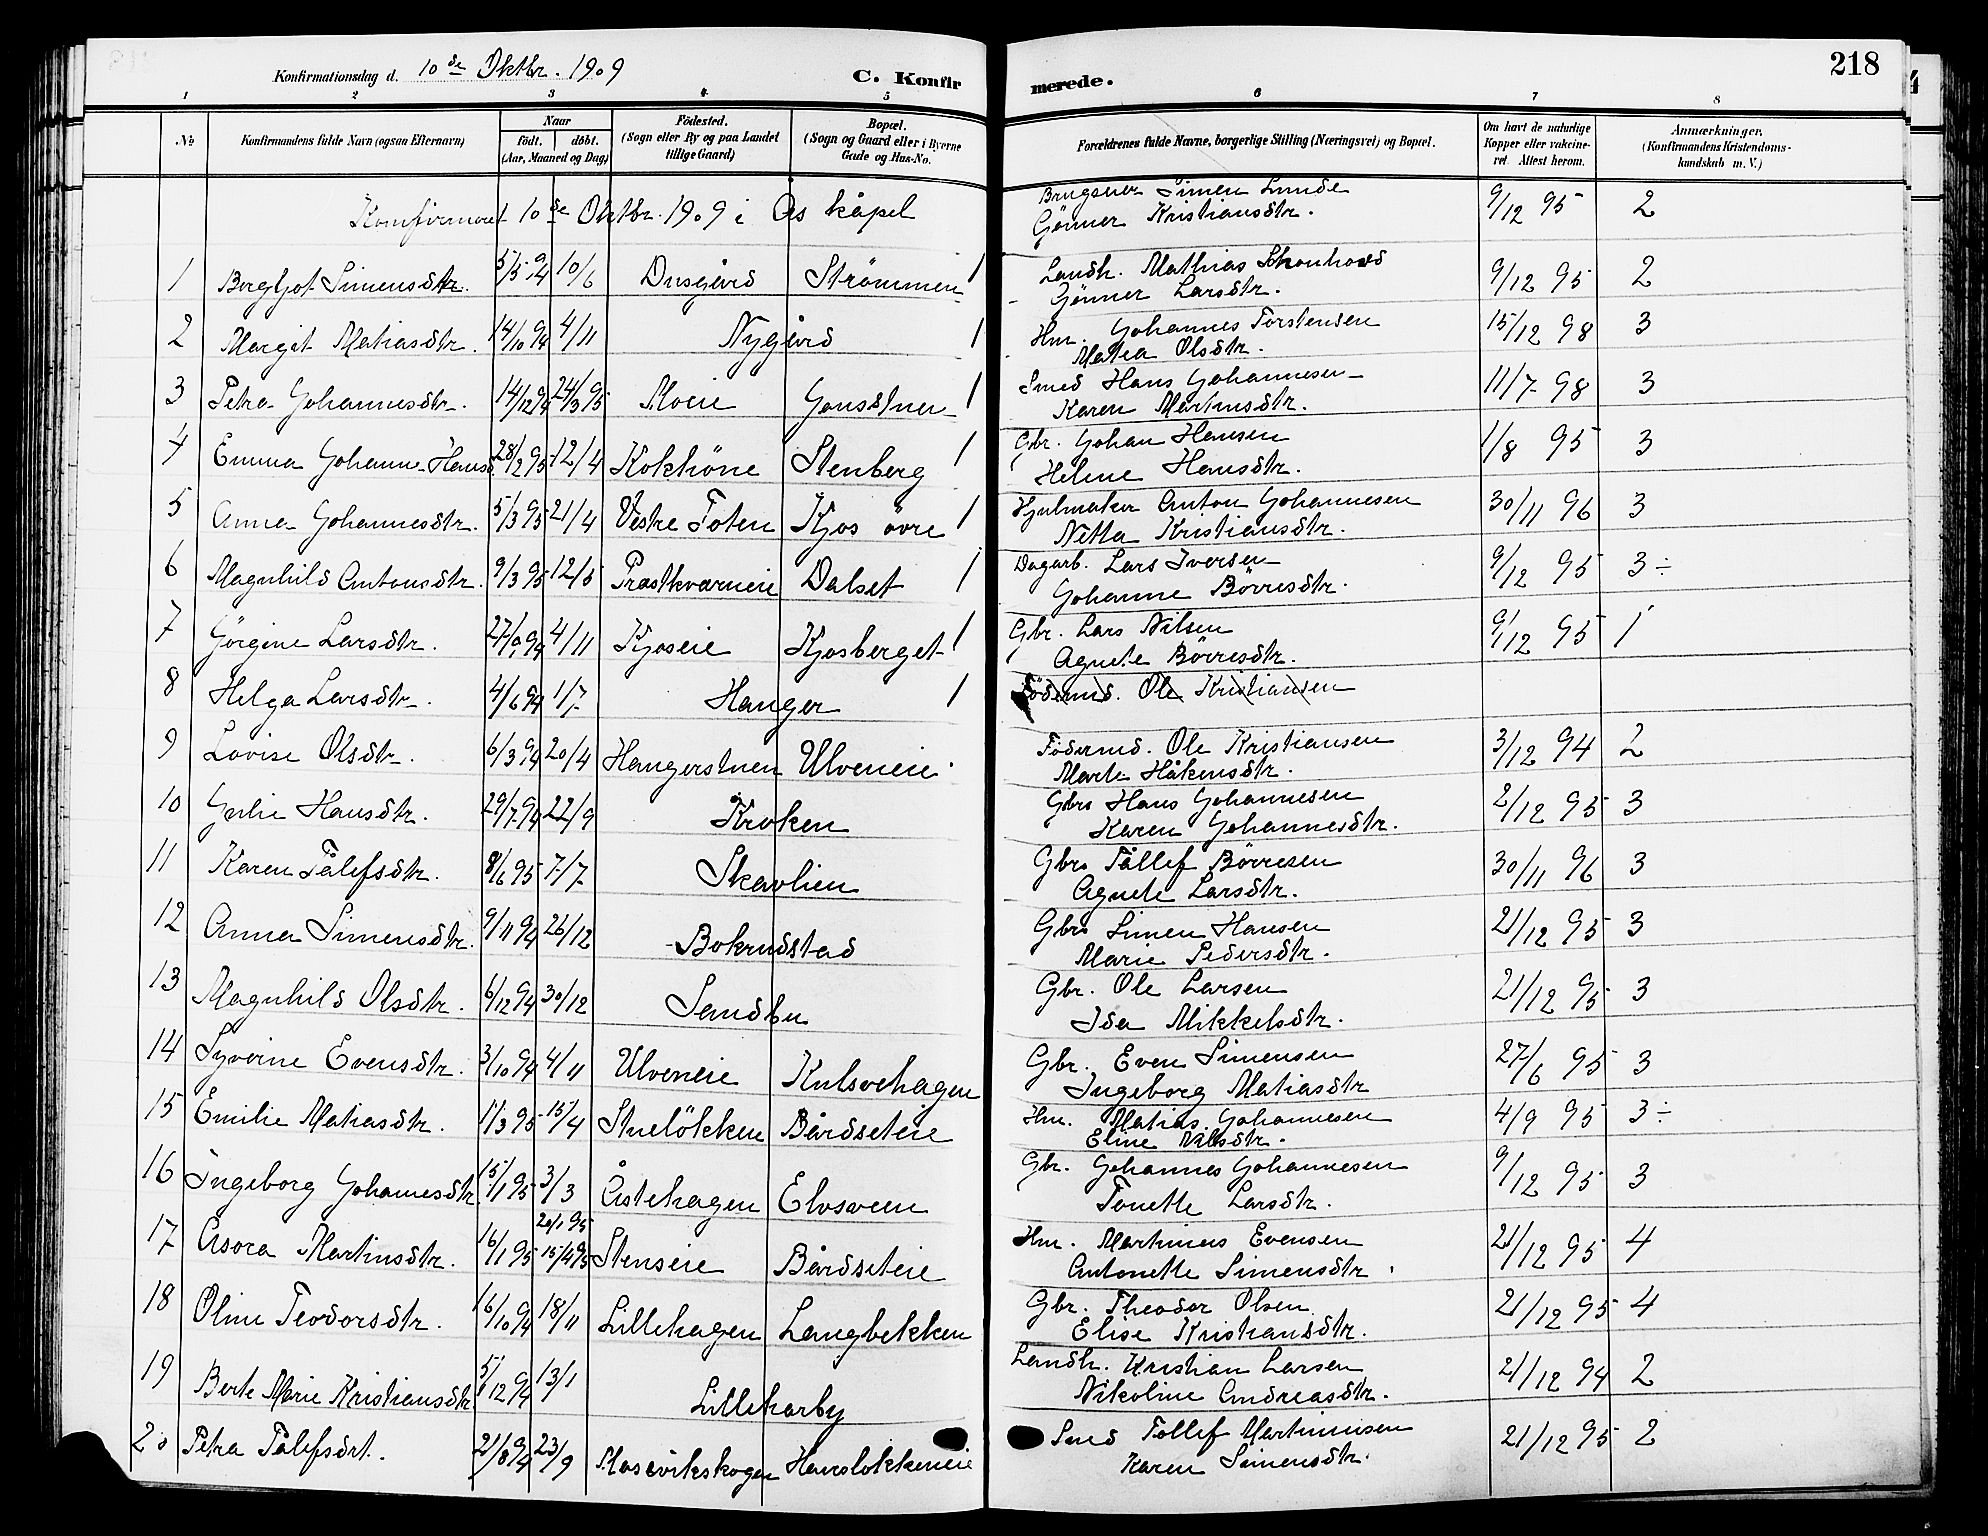 Konfirmationsdag d. 10de Oktbr. 1909
C. Konfir
merede.
218
1 2 3 4 5 6 7 8
№
Konfirmandens fulde Navn (ogsaa Efternavn)
Naar
født. døbt.
(Aar, Maaned og Dag)
Fødested.
(Sogn eller By og paa Landet
tillige Gaard)
Bopæl.
(Sogn og Gaard eller i Byerne
Gade og Hus-No.
Forældrenes fulde Navne, borgerlige Stilling (Næringsvei) og Bopæl.
Om havt de naturlige
Kopper eller vakcine-
ret. Attest herom.
Anmærkninger.
(Konfirmandens Kristendoms-
kundskab m. V.)
Konfirmeret 10de Oktbr. 1909 i Ås kapel
Simen Lunde 9/12 95 2
Gönner Kristiansdtr.
1 Bergljot Simensdtr. 5/5 94 10/6 Dusgård Strömmen
Landh. Mathias 9/12 95 2
Gönner Larsdtr.
2 Margit Matiasdtr. 14/10 94 4/11 Nygård
Hm. Johannes Torstensen 15/12 98 3
Matea Olsdtr.
3 Petra Johannesdtr. 14/12 94 24/3 95 Moeie
Smed Hans Johannesen 11/7 98 3
Karen Martinusdtr.
4 Emma Johanne Hansd. 28/2 95 12/4 Stenberg
Gbr. Johan Hansen 1/8 95 3
Helene Hansdtr.
5 Anna Johannesdtr. 5/3 95 21/4 Vestre Toten Kjos övre
Hjulmaker Anton Johannesen 30/11 96 3
Netta Kristiansdtr.
6 Magnhild Antonsdtr. 9/3 95 12/5 Præstkværneie Dalset
Dagarb. Lars Iversen 9/12 95 3 ÷
Johanne Börresdtr.
7 Jörgine Larsdtr. 4/11 Kjoseie Kjosberget
Gbr. Lars Nilsen 9/12 95 1
Agnete Börresdtr.
8 Helga Larsdtr. 4/6 94 1/7 Hanger
Föderaad. Ole Kristiansen
9 Lovise Olsdtr. 6/3 94 20/4 Hangerstuen Ulveneie
Föderaad. Ole Kristiansen 3/12 94 2
Marte Håkensdtr.
10 Julie Hansdtr. 29/7 94 22/9 Kroken
Gbr. Hans Johannesen 2/12 95 3
Karen Johannesdtr.
11 Karen Tålefsdtr. 8/6 95 7/7 Skavlien
Gbr. Tållef Börresen 30/11 96 3
Agnete Larsdtr.
12 Anna Simensdtr. 9/11 94 26/12 Bokrudstad
Gbr. Simen Hansen 21/12 95 3
Marie Pedersdtr.
13 Magnhild Olsdtr. 6/12 94 30/12 Sandbu
Gbr. Ole Larsen 21/12 95 3
Ida Mikkelsdtr.
14 Syverine Evensdtr. 3/10 94 4/11 Ulveneie Kulsvehagen
Gbr. Even Simensen 27/6 95 3
Ingeborg Matiasdtr
15 Emilie Matiasdtr. 1/3 95 15/4 Stuelökken Bårdseteie
Hm. Matias Johannesen 4/9 95 3 ÷
Eline Nilsdtr.
16 Ingeborg Johannesdtr. 15/1 95 3/3 Åstehagen Elvsveen
Gbr. Johannes Johannesen 9/12 95 3
Tonette Larsdtr.
20/1 95
17 Asora Martinsdtr. 16/1 95 15/4 95 Stenseie Bårdseteie
Hm. Martinius Evensen 21/12 95 4
Antonette Simensdtr.
18 Oline Teodorsdtr. 16/10 94 18/11 Lillehagen Langbekken
Gbr. Theodor Olsen 21/12 95 4
Elise Kristiansdtr.
19 Berte Marie Kristiansdtr 5/12 94 13/1 Lillekarby
Landh. Kristian Larsen 21/12 94 2
Nikoline Andreasdtr.
20 Petra Tålefsdrt. 21/8 94 23/9 Hanslökkeneie
Smed Tollef Martiniusen 21/12 95 2
Karen Simensdtr.